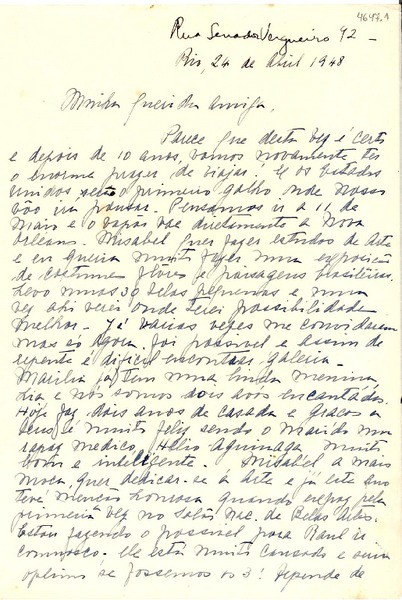 4647.1
Rua Senador Vergueiro 92 -
Rio, 24 de Abril 1948
Minha Querida Amiga,
Parece que desta vez é certo
e depois de 10 anos, vamos novamente ter
o enorme prazer de viajar. E os Estados
Unidos serão o primeiro galho onde nosso
vôo irá pousar. Pensamos ir a 11 de
Maio e o vapor vae diretamente a Nova
Orleans. Misabel quer fazer estudos de Arte
e eu queria muito fazer uma exposição
de costumes flôres e paisagens brasileiras.
Levo umas 30 telas pequenas e uma
vez ahi verei onde terei possibilidade
melhor - Já varias vezes me convidaram
mas só agora foi possivel e assim de
repente é dificil encontrar galeria -
Marilia já tem uma linda menina,
Lia e nós somos dois avós encantados.
Hoje faz dois anos de casada e graças a
Deus é muito feliz sendo o marido um
rapaz medico, Helio Aguinaga, muito
bom e inteligente. Misabel a mais
moça, quer dedicar-se á Arte e já este ano
teve menção honrosa quando expoz pela
primeira vez no Salão Nac. de Belas Artes.
Estou fazendo o possivel para Raul ir
comnosco - Ele está muito cansado e seria
optimo se fossemos os 3! Depende de